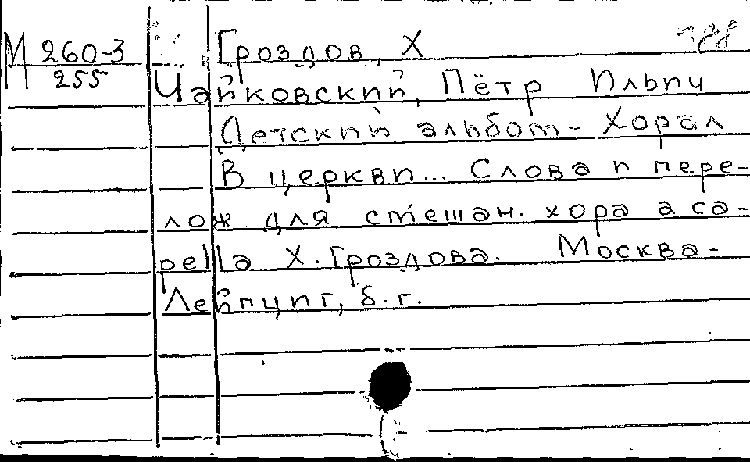 М 260-3
255
Гроздов, Х
Чайковский, Пётр Ильич
Детский альбом - Хорал
В церкви... Слова и пере-
лож для смешан. хора a ca-
pella Х. Гроздова. Москва-
Лейпциг, б. г.